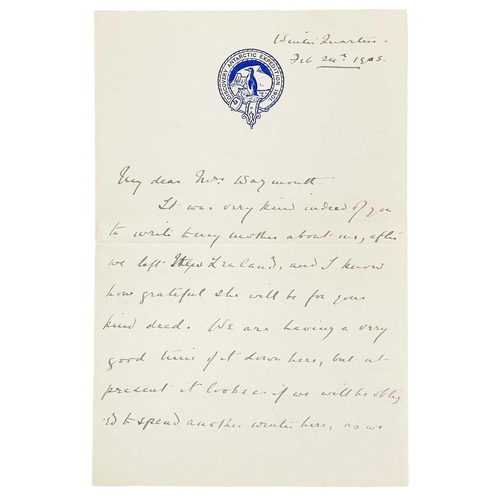 Winter Quarters.
Feb 24th 1903.
DISCOVERY ANTARCTIC EXPEDITION 1901
My dear Mrs Waymouth.
It was very kind indeed of you
to write to my mother about me, after
we left New Zealand, and I know
how grateful she will be for your
kind deed. We are having a very
good time of it down here, but at
present it looks as if we will be oblig
ed to spend another winter here, as we